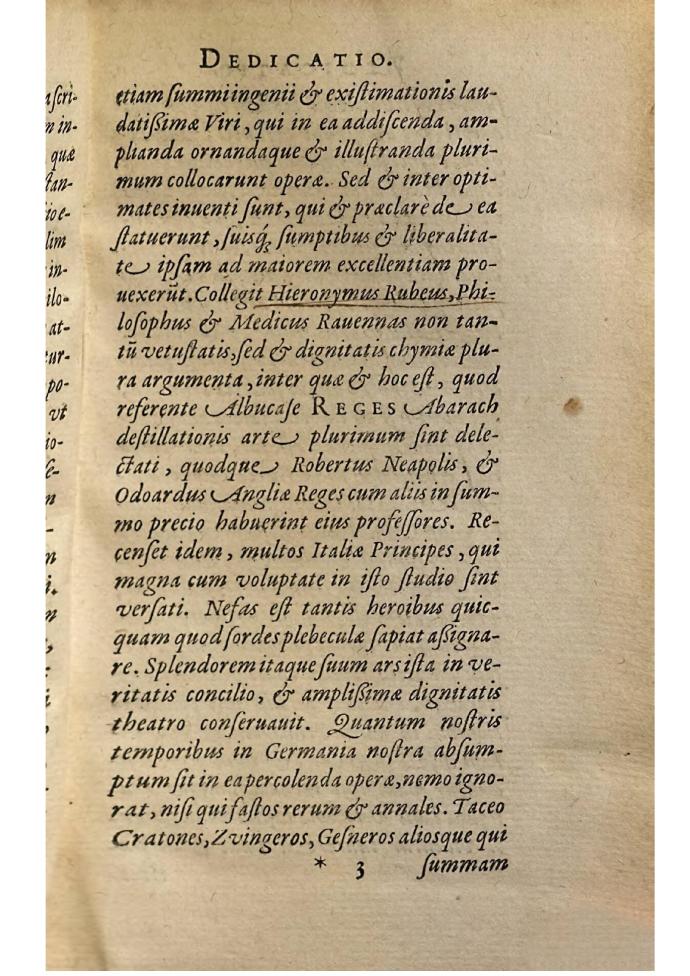 DEDICATIO.
etiam summi ingenii & existimationis lau-
datißimæ Viri, qui in ea addiscenda, am-
plianda ornandaque & illustranda pluri-
mum collocarunt operæ. Sed & inter opti-
mates inuenti sunt, qui & præclarè de ea
statuerunt, suisq́; sumptibus & liberalita-
te ipsam ad maiorem excellentiam pro-
uexerūt. Collegit Hieronymus Rubeus, Phi-
losophus & Medicus Rauennas non tan-
tū vetustatis, sed & dignitatis chymiæ plu-
ra argumenta, inter quæ & hoc est, quod
referente Albucase REGES Abarach
destillationis arte plurimum sint dele-
ctati, quodque Robertus Neapolis, &
Odoardus Angliæ Reges cum aliis in sum-
mo precio habuerint eius professores. Re-
censet idem, multos Italiæ Principes, qui
magna cum voluptate in isto studio sint
versati. Nefas est tantis heroibus quic-
quam quod sordes plebeculæ sapiat aßigna-
re. Splendorem itaque suum ars ista in ve-
ritatis concilio, & amplißimæ dignitatis
theatro conseruauit. Quantum nostris
temporibus in Germania nostra absum-
ptum sit in ea percolenda operæ, nemo igno-
rat, nisi qui fastos rerum & annales. Taceo
Cratones, Zvingeros, Gesneros aliosque qui
* 3 summam
ascri-
m in-
quæ
tan-
io e-
lim
in-
ilo-
at-
tur-
po-
vt
io-